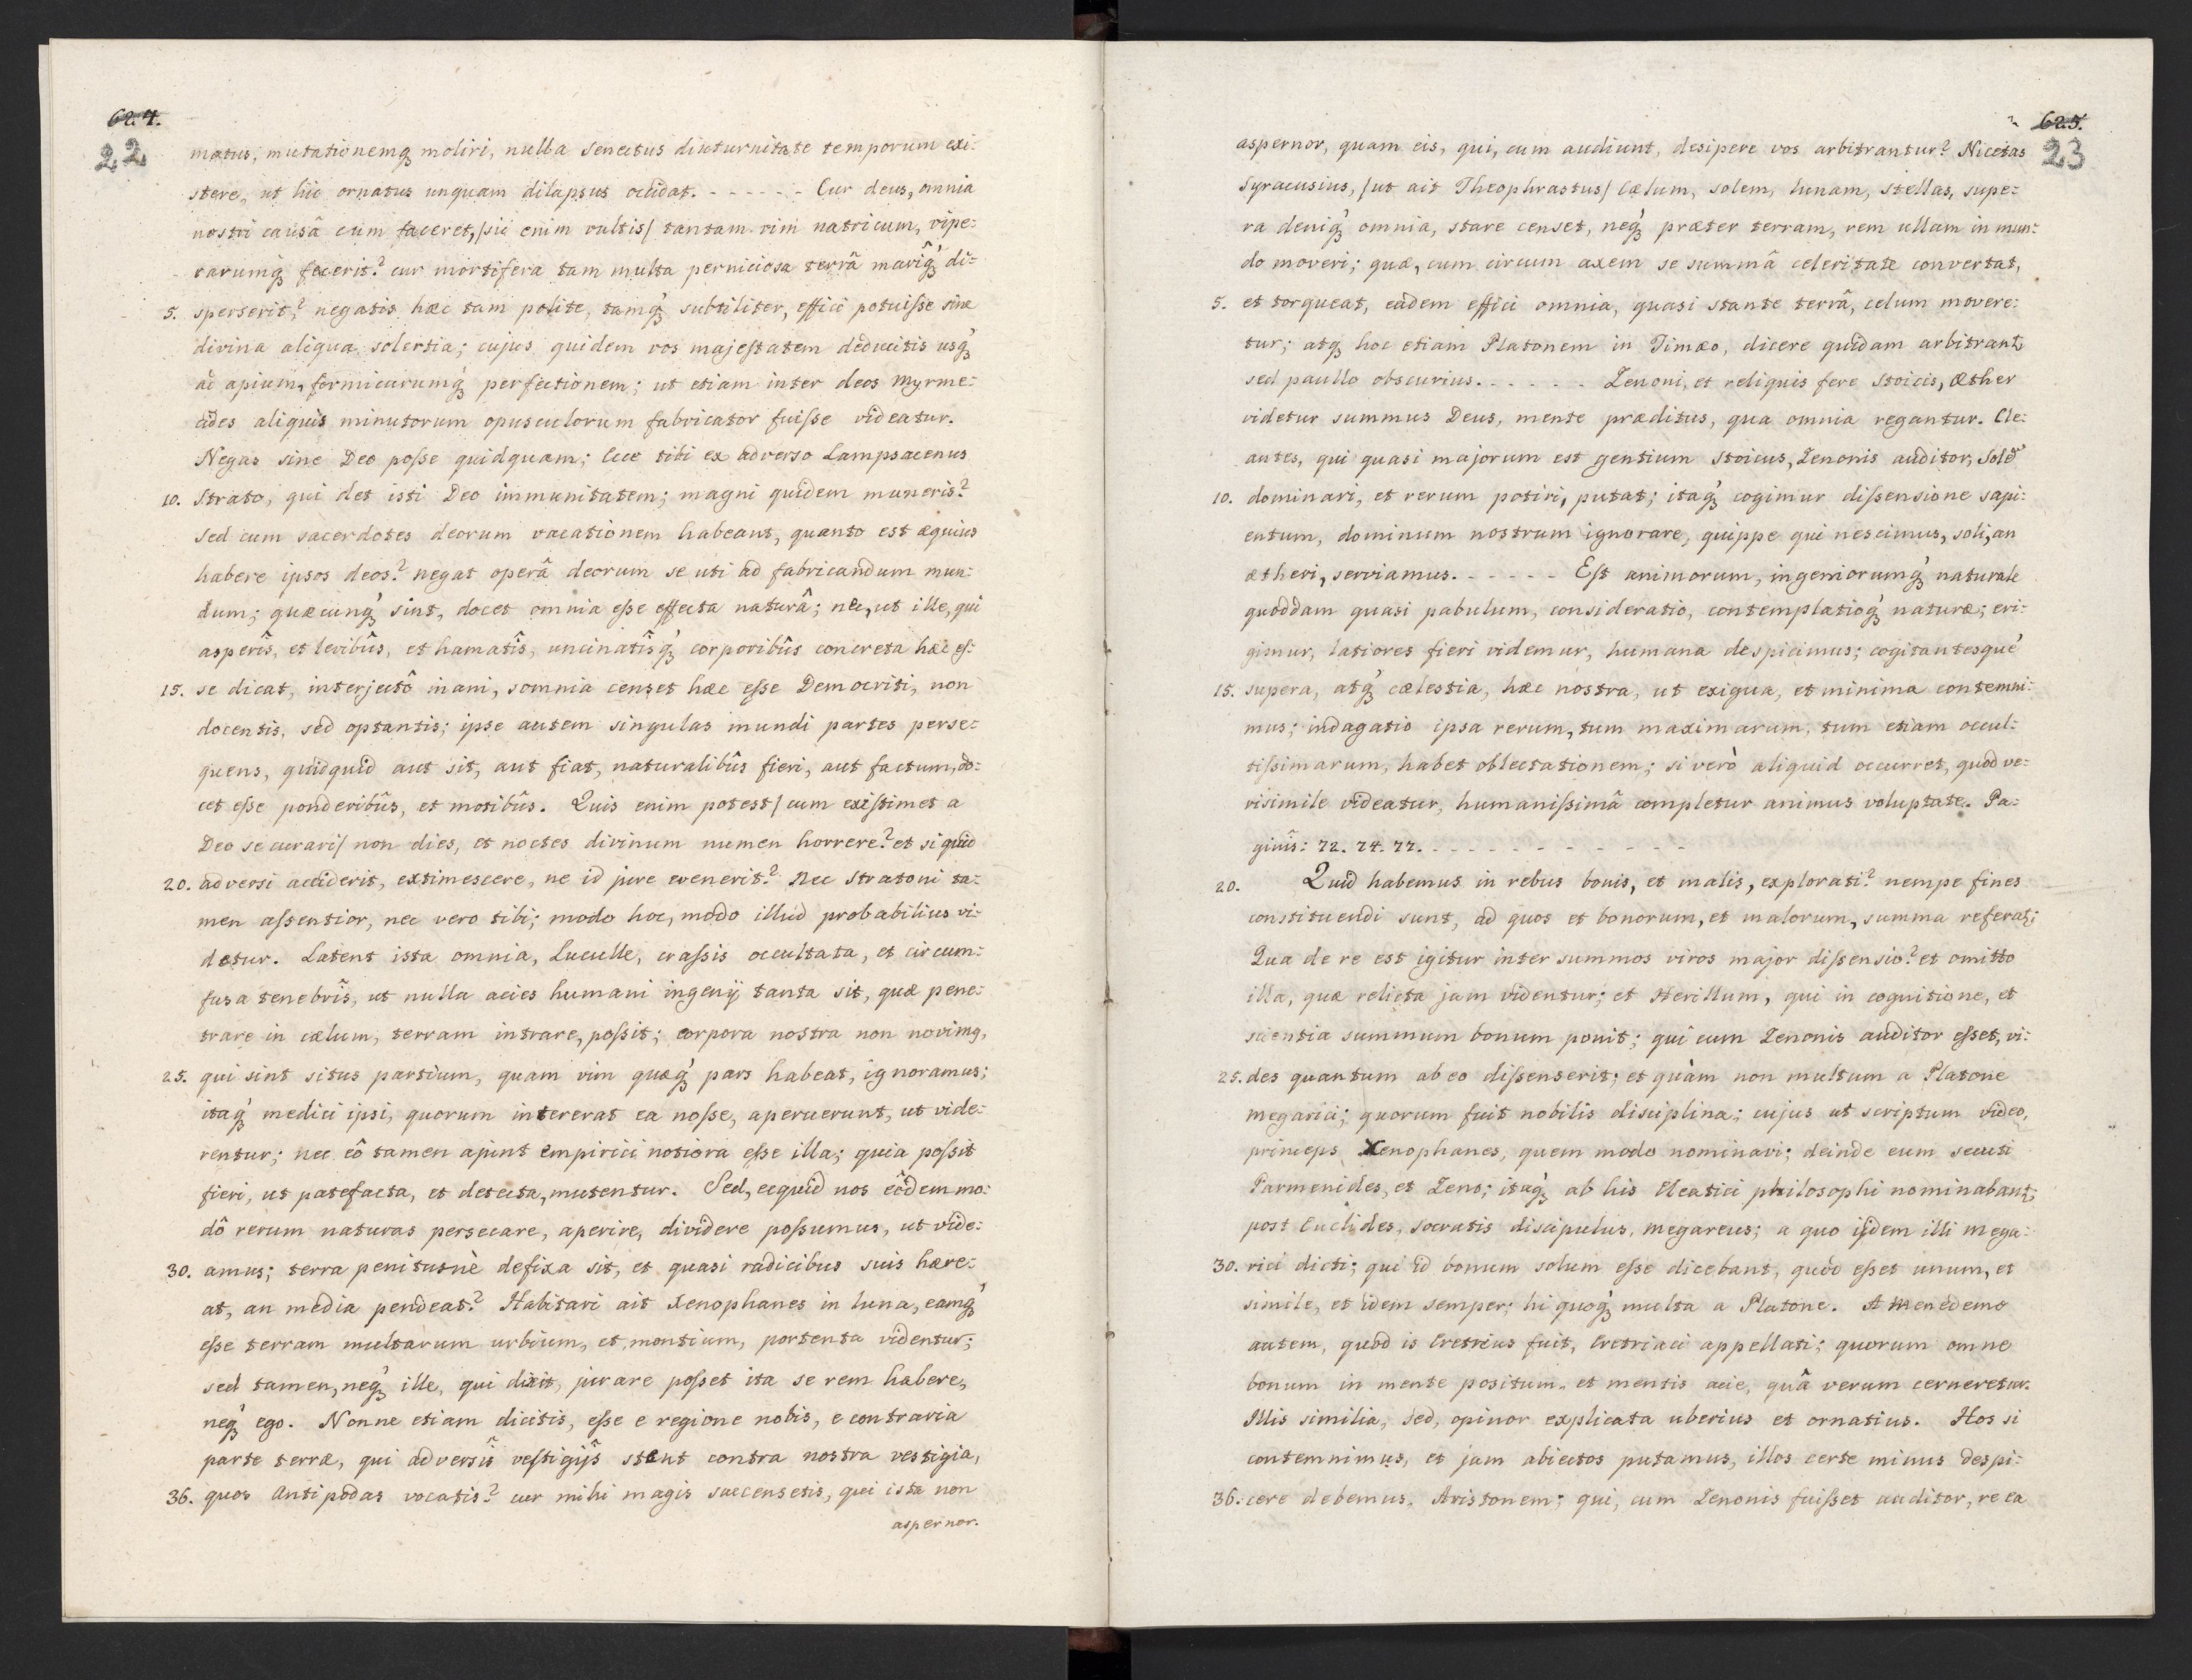 624.
22
matus, mutationemq́ moliri, nulla senectus diuturnitate temporum exi:
stere, ut hic ornatus unquam dilapsus occidat. - - - - - - Cur deus, omnia
nostri causâ cum faceret, /sic enim vultis/ tantam vim natricum, vipe:
rarumq́ fecerit? cur mortifera tam multa perniciosa terrâ mariq́ di:
5. sperserit? negatis hæc tam polite, tamq́ subtiliter, effici potuisse sine
divina aliqua solertia; cujus quidem vos majestatem deducitis usq́
ad apium, formicarumq́ perfectionem; ut etiam inter deos Myrme:
cides aliquis minutorum opusculorum fabricator fuisse videatur.
Negas sine Deo posse quidquam; Ecce tibi ex adverso Lampsacenus
10. Strato, qui det isti Deo immunitatem; magni quidem muneris?
sed cum sacerdotes deorum vacationem habeant, quanto est æquius
habere ipsos deos? negat operâ deorum se uti ad fabricandum mun:
dum; quæcunq́ sint, docet omnia esse effecta naturâ; nec, ut ille, qui
asperîs, et levibûs, et hamatîs, uncinatîsq́ corporibûs concreta hæc es:
15. se dicat, interjectô inani, somnia censet hæc esse Democriti, non
docentis, sed optantis; ipse autem singulas mundi partes perse:
quens, quidquid aut sit, aut fiat, naturalibûs fieri, aut factum, do:
cet esse ponderibûs, et motibûs. Quis enim potest /cum existimet a
Deo se curari/ non dies, et noctes divinum numen horrere? et si quid
20. adversi acciderit, extimescere, ne id jure evenerit? Nec Stratoni ta:
men assentior, nec vero tibi; modo hoc, modo illud probabilius vi:
detur. Latent ista omnia, Luculle, crassis occultata, et circum:
fusa tenebrîs, ut nulla acies humani ingenij tanta sit, quæ pene:
trare in cælum, terram intrare, possit; corpora nostra non novimq,
25. qui sint situs partium, quam vim quæq́ pars habeat, ignoramus;
itaq́ medici ipsi, quorum intererat ea nosse, aperuerunt, ut vide:
rentur; nec eô tamen ajunt Empirici notiora esse illa; quia possit
fieri, ut patefacta, et detecta, mutentur. Sed, ecquid nos eôdem mo:
dô rerum naturas persecare, aperire, dividere possumus, ut vide:
30. amus; terra penitusnè defixa sit, et quasi radicibus suis hære:
at, an media pendeat? Habitari ait Xenophanes in luna, eamq́
esse terram multarum urbium, et montium, portenta videntur;
sed tamen, neq́ ille, qui dixit, jurare posset ita se rem habere,
neq́ ego. Nonne etiam dicitis, esse e regione nobis, e contraria
parte terræ, qui adversîs vestigijs stent contra nostra vestigia,
36. quos Antipodas vocatis? cur mihi magis succensetis, qui ista non
aspernor.
625.
23
aspernor, quam eis, qui, cum audiunt, desipere vos arbitrantur? Nicetas
Syracusius, /ut ait Theophrastus/ Cælum, solem, lunam, stellas, supe:
ra deniq́ omnia, stare censet, neq́ præter terram, rem ullam in mun:
do moveri; quæ, cum circum axem se summâ celeritate convertat,
5. et torqueat, eadem effici omnia, quasi stante terrâ, celum movere:
tur; atq́ hoc etiam Platonem in Timæo, dicere quidam arbitrant
sed paullo obscurius. - - - - - Zenoni, et reliquis fere Stoicis, Æther
videtur summus Deus, mente præditus, qua omnia regantur. Cle:
antes, qui quasi majorum est gentium Stoicus, Zenonis auditor, Solẽ
10. dominari, et rerum potiri, putat; itaq́ cogimur dissensione sapi:
entum, dominum nostrum ignorare, quippe qui nescimus, soli, an
ætheri, serviamus. - - - - - Est animorum, ingeniorumq́ naturale
quoddam quasi pabulum, consideratio, contemplatioq́ naturæ; eri:
gimur, latiores fieri videmur, humana despicimus; cogitantesque
15. supera, atq́ cælestia, hæc nostra, ut exigua, et minima contemni:
mus; indagatio ipsa rerum, tum maximarum, tum etiam occul:
tissimarum, habet oblectationem; si verò aliquid occurret, quod ve:
risimile videatur, humanissimâ completur animus voluptate. Pa:
ginîs: 72. 74. 77. - - - - - - - - - - -
20. Quid habemus in rebus bonis, et malis, explorati? nempe fines
constituendi sunt, ad quos et bonorum, et malorum, summa referat;
Qua de re est igitur inter summos viros major dissensio? et omitto
illa, quæ relicta jam videntur; et Herillum, qui in cognitione, et
scientia summum bonum ponit; qui cum Zenonis auditor esset, vi:
25. des quantum ab eo dissenserit; et quàm non multum a Platone
megarici; quorum fuit nobilis disciplina; cujus ut scriptum video,
princeps Xenophanes, quem modo nominavi; deinde eum secuti
Parmenides, et Zeno; itaq́ ab his Eleatici philosophi nominabant;
post Euclides, Socratis discipulus, megareus; a quo ijdem illi mega:
30. rici dicti; qui id bonum solum esse dicebant, quod esset unum, et
simile, et idem semper; hi quoq́ multa a Platone. A Menedemo
autem, quod is Eretrius fuit, Eretriaci appellati; quorum omne
bonum in mente positum, et mentis acie, quâ verum cerneretur.
Illis similia, sed, opinor explicata uberius et ornatius. Hos si
contemnimus, et jam abiectos putamus, illos certe minus despi:
36. cere debemus. Aristonem; qui, cum Zenonis fuisset auditor, re ea